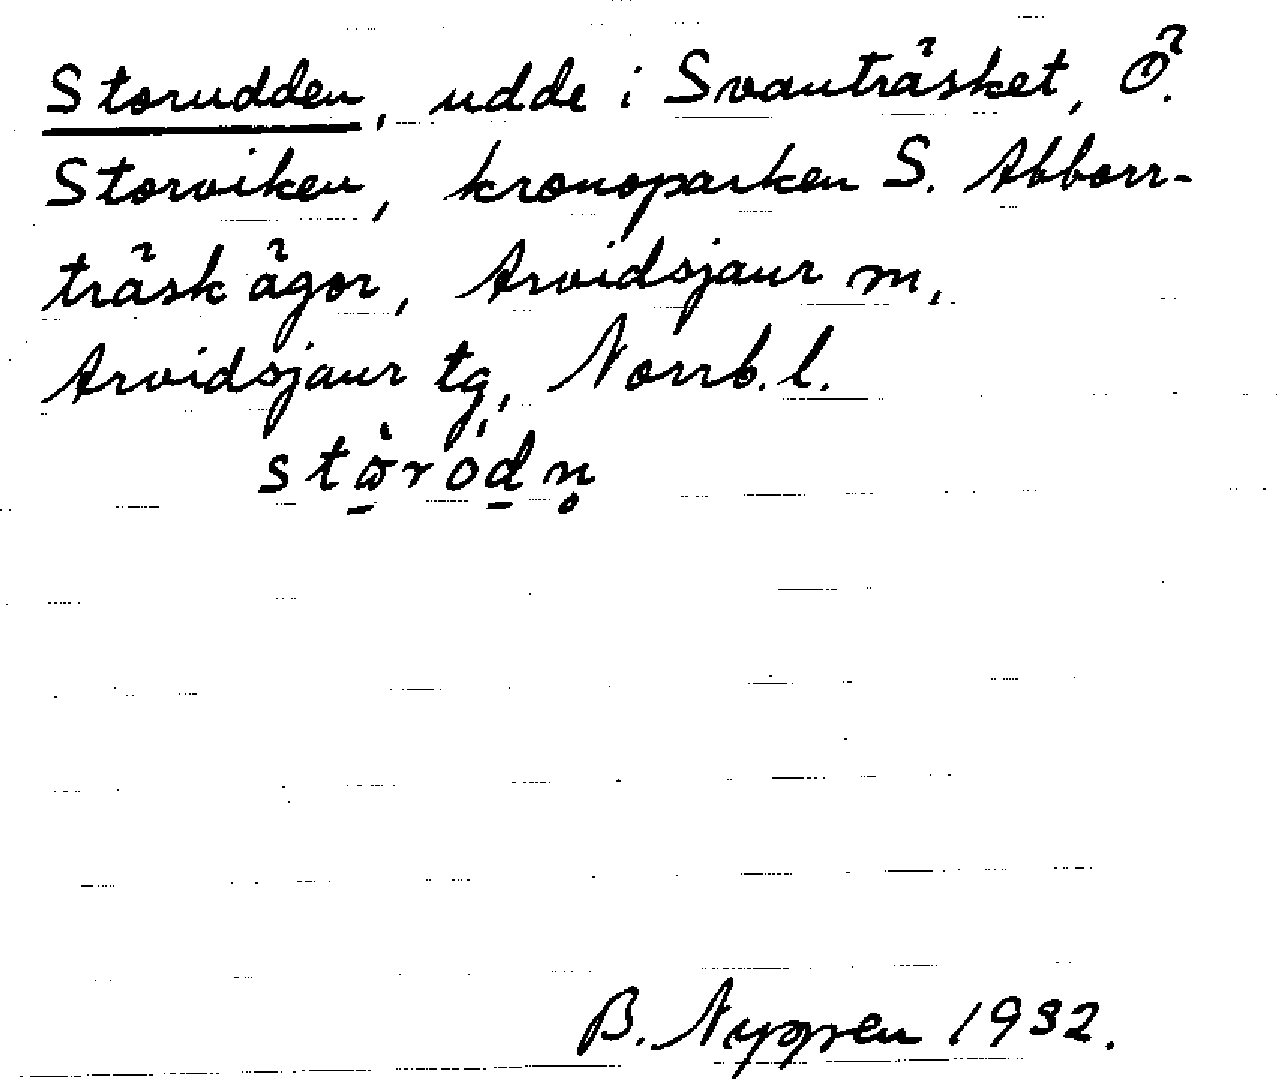 Storudden, udde i Svanträsket, Ö.
Storviken, kronoparken S. Abborr-
träsk ägor, Arvidsjaur m,
Arvidsjaur tg, Norrb. l.
B. Nygren 1932.